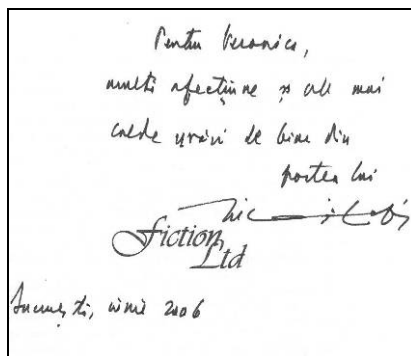 Pentru Veronica,
multă afecțiune și cele mai
calde urări de bine din
partea lui
Fiction,
Ltd
București, iunie 2006